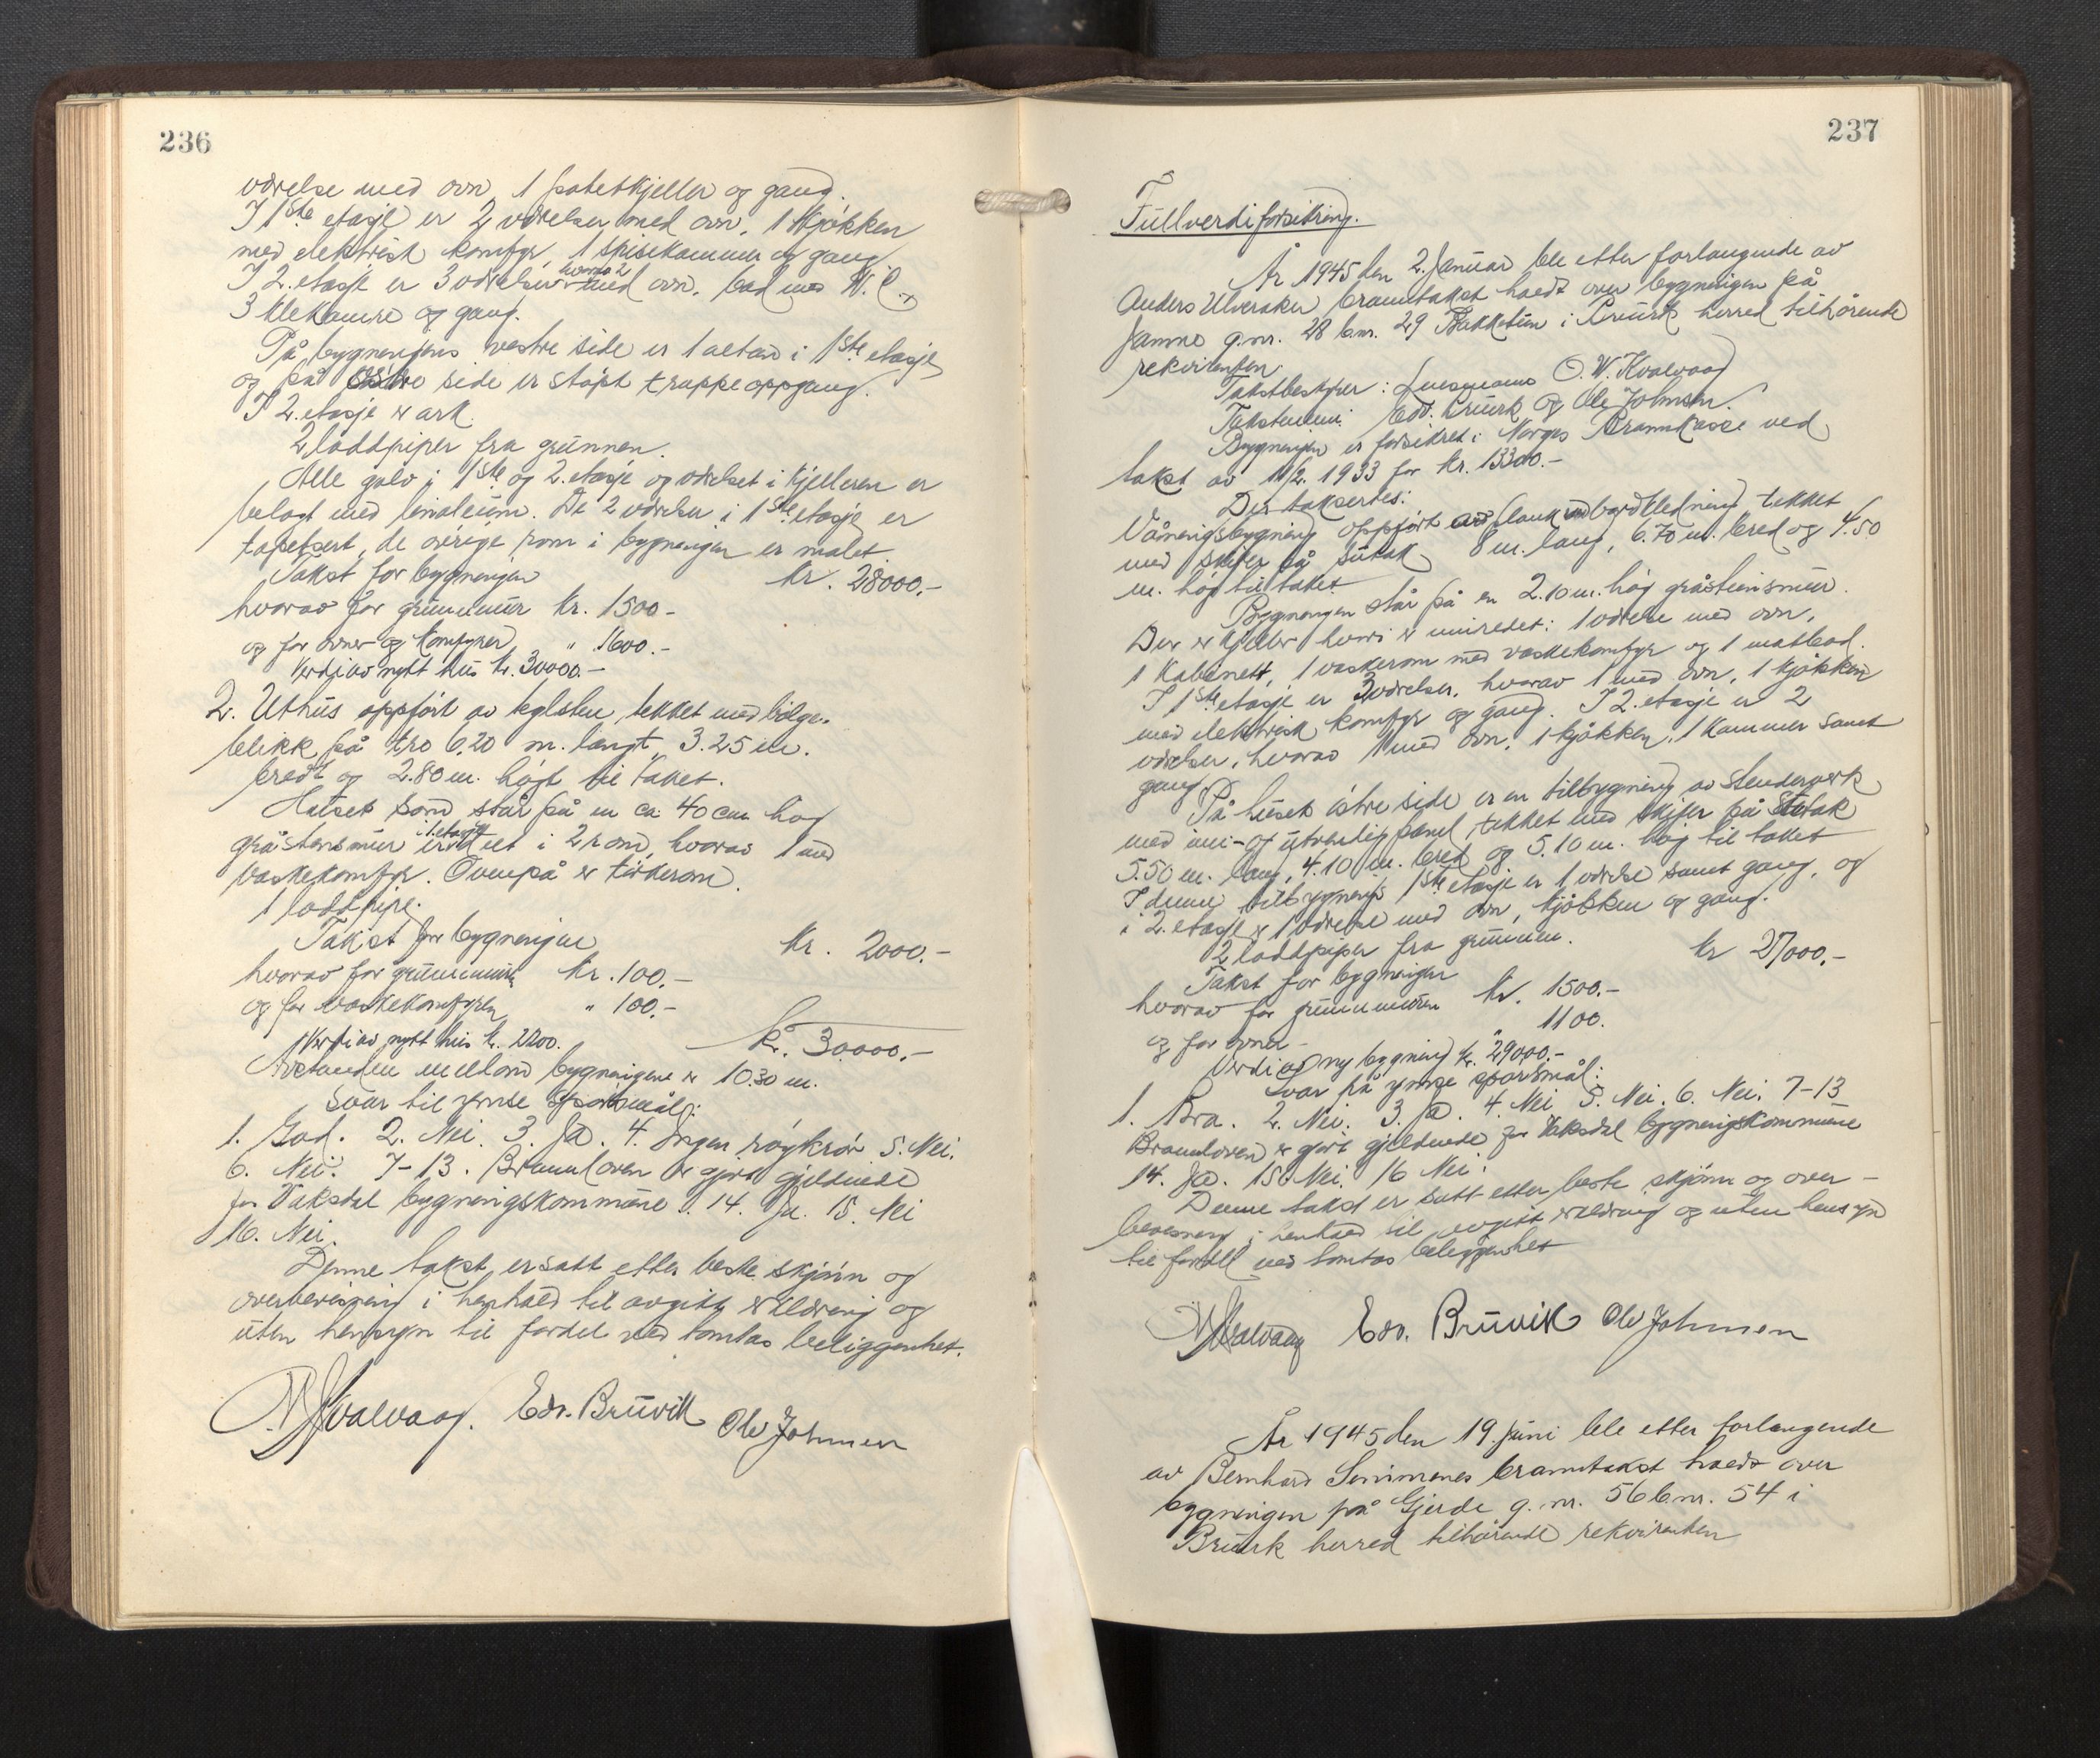 236
værelse med ovn, 1 potetkjeller og gang.
I 1ste etasje er 2 værelser med ovn, 1 kjøkken
med elektrisk komfyr, 1 spisekammer og gang
I 2. etasje er 3 værelser hvorav 2 med ovn, bad med W.C.,
3 klekamre og gang.
På bygningens vestre side er 1 altan i 1ste etasje
og på østre side er støpt trappeoppgang.
I 2. etasje er ark.
2 loddpiper fra grunnen.
Alle golv i 1ste og 2. etasje og værelset i kjelleren er
belagt med linoleum. De 2 værelser i 1ste etasje er
tapetsert, de øvrige rom i bygningen er malet.
Takst for bygningen kr. 28000.-
hvorav for grunnmur kr. 1500-
og for ovner og komfyrer " 1600.-
Verdi av nytt hus kr. 30000.-
2. Uthus oppført av teglsten, tekket med bølge-
blikk på tro 6.20 m. langt, 3.25 m.
bredt og 2.80 m. højt til taket.
Huset som står på en ca 40 cm høg
gråstensmur er i 1 etasje delt i 2 rom, hvorav 1 med
vaskekomfyr. Ovenpå er tørkerom.
1 loddpipe.
Takst for bygningen kr. 2000.-
hvorav for grunnmuren kr. 100.-
og for vaskekomfyren " 100.-
Verdi av nytt hus kr. 2200.
kr. 30000.-
Avstanden mellom bygningene er 10.30 m.
Svar til ymse spørsmål:
1. God. 2. Nei. 3. Ja. 4. Ingen røykrør 5. Nei.
6. Nei. 7-13. Brannloven er gjort gjeldende
for Vaksdal bygningskommune. 14. Ja. 15. Nei
16. Nei.
Denne takst er satt etter beste skjønn og
overbevisning i henhold til avgitt erklæring og
uten hensyn til fordel ved tomtas beliggenhet.
O. W. Kvalvaag. Edv. Bruvik Ole Johnsen
237
Fullverdiforsikring.
År 1945 den 2. Januar ble etter forlangende av
Anders Ulveraker branntakst holdt over bygningen på
Jamne g.nr. 28 b.nr. 29 Bakketun i Bruvik herred tilhørende
rekvirenten.
Takstbestyrer: Lensmann O. W. Kvalvaag
Takstmenn: Edv. Bruvik og Ole Johnsen.
Bygningen er forsikret i Norges Brannkasse ved
takst av 11/2. 1933 for kr. 13300.-
Der takseres:
Våningsbygning oppført av plank med bordkledning tekket
med skifer på sutak 8 m. lang, 6.70 m. bred og 4.50
m. høg til taket.
Bygningen står på en 2.10 m. høg gråsteinsmur.
Der er kjeller hvori er innredet: 1 værelse med ovn,
1 kabinett, 1 vaskerom med vaskekomfyr og 1 matbod.
I 1ste etasje er 3 værelser, hvorav 1 med ovn, 1 kjøkken
med elektrisk komfyr og gang. I 2. etasje er 2
værelser, hvorav 1 med ovn, 1 kjøkken, 1 kammer samt
gang.
På husets østre side er en tilbygning av stenderverk
med inn- og utvendig panel, tekket med skifer på sutak
5.50 m. lang, 4.10 m. bred og 5.10 m. høg til taket
I denne tilbygnings 1ste etasje er 1 værelse samt gang, og
i 2. etasje er 1 værelse med ovn, kjøkken og gang.
2 loddpiper fra grunnen.
Takst for bygningen kr 27000.-
hvorav for grunnmuren kr. 1500.-
og for ovner - " 1100.
Verdi av ny bygning kr. 29000.-
Svar på ymse spørsmål:
1. Bra. 2. Nei. 3. Ja. 4. Nei 5. Nei. 6. Nei. 7-13
Brannloven er gjort gjeldende for Vaksdal bygningskommune
14. Ja. 15. Nei. 16 Nei.
Denne takst er satt etter beste skjønn og over-
bevisning i henhold til avgitt erklæring og uten hensyn
til fordel ved tomtas beliggenhet
O. W. Kvalvaag Edv. Bruvik Ole Johnsen
År 1945 den 19. Juni ble etter forlangende
av Bernhard Simmenes branntakst holdt over
bygningen på Gjerde g.nr. 56 b.nr. 54 i
Bruvik herred tilhørende rekvirenten